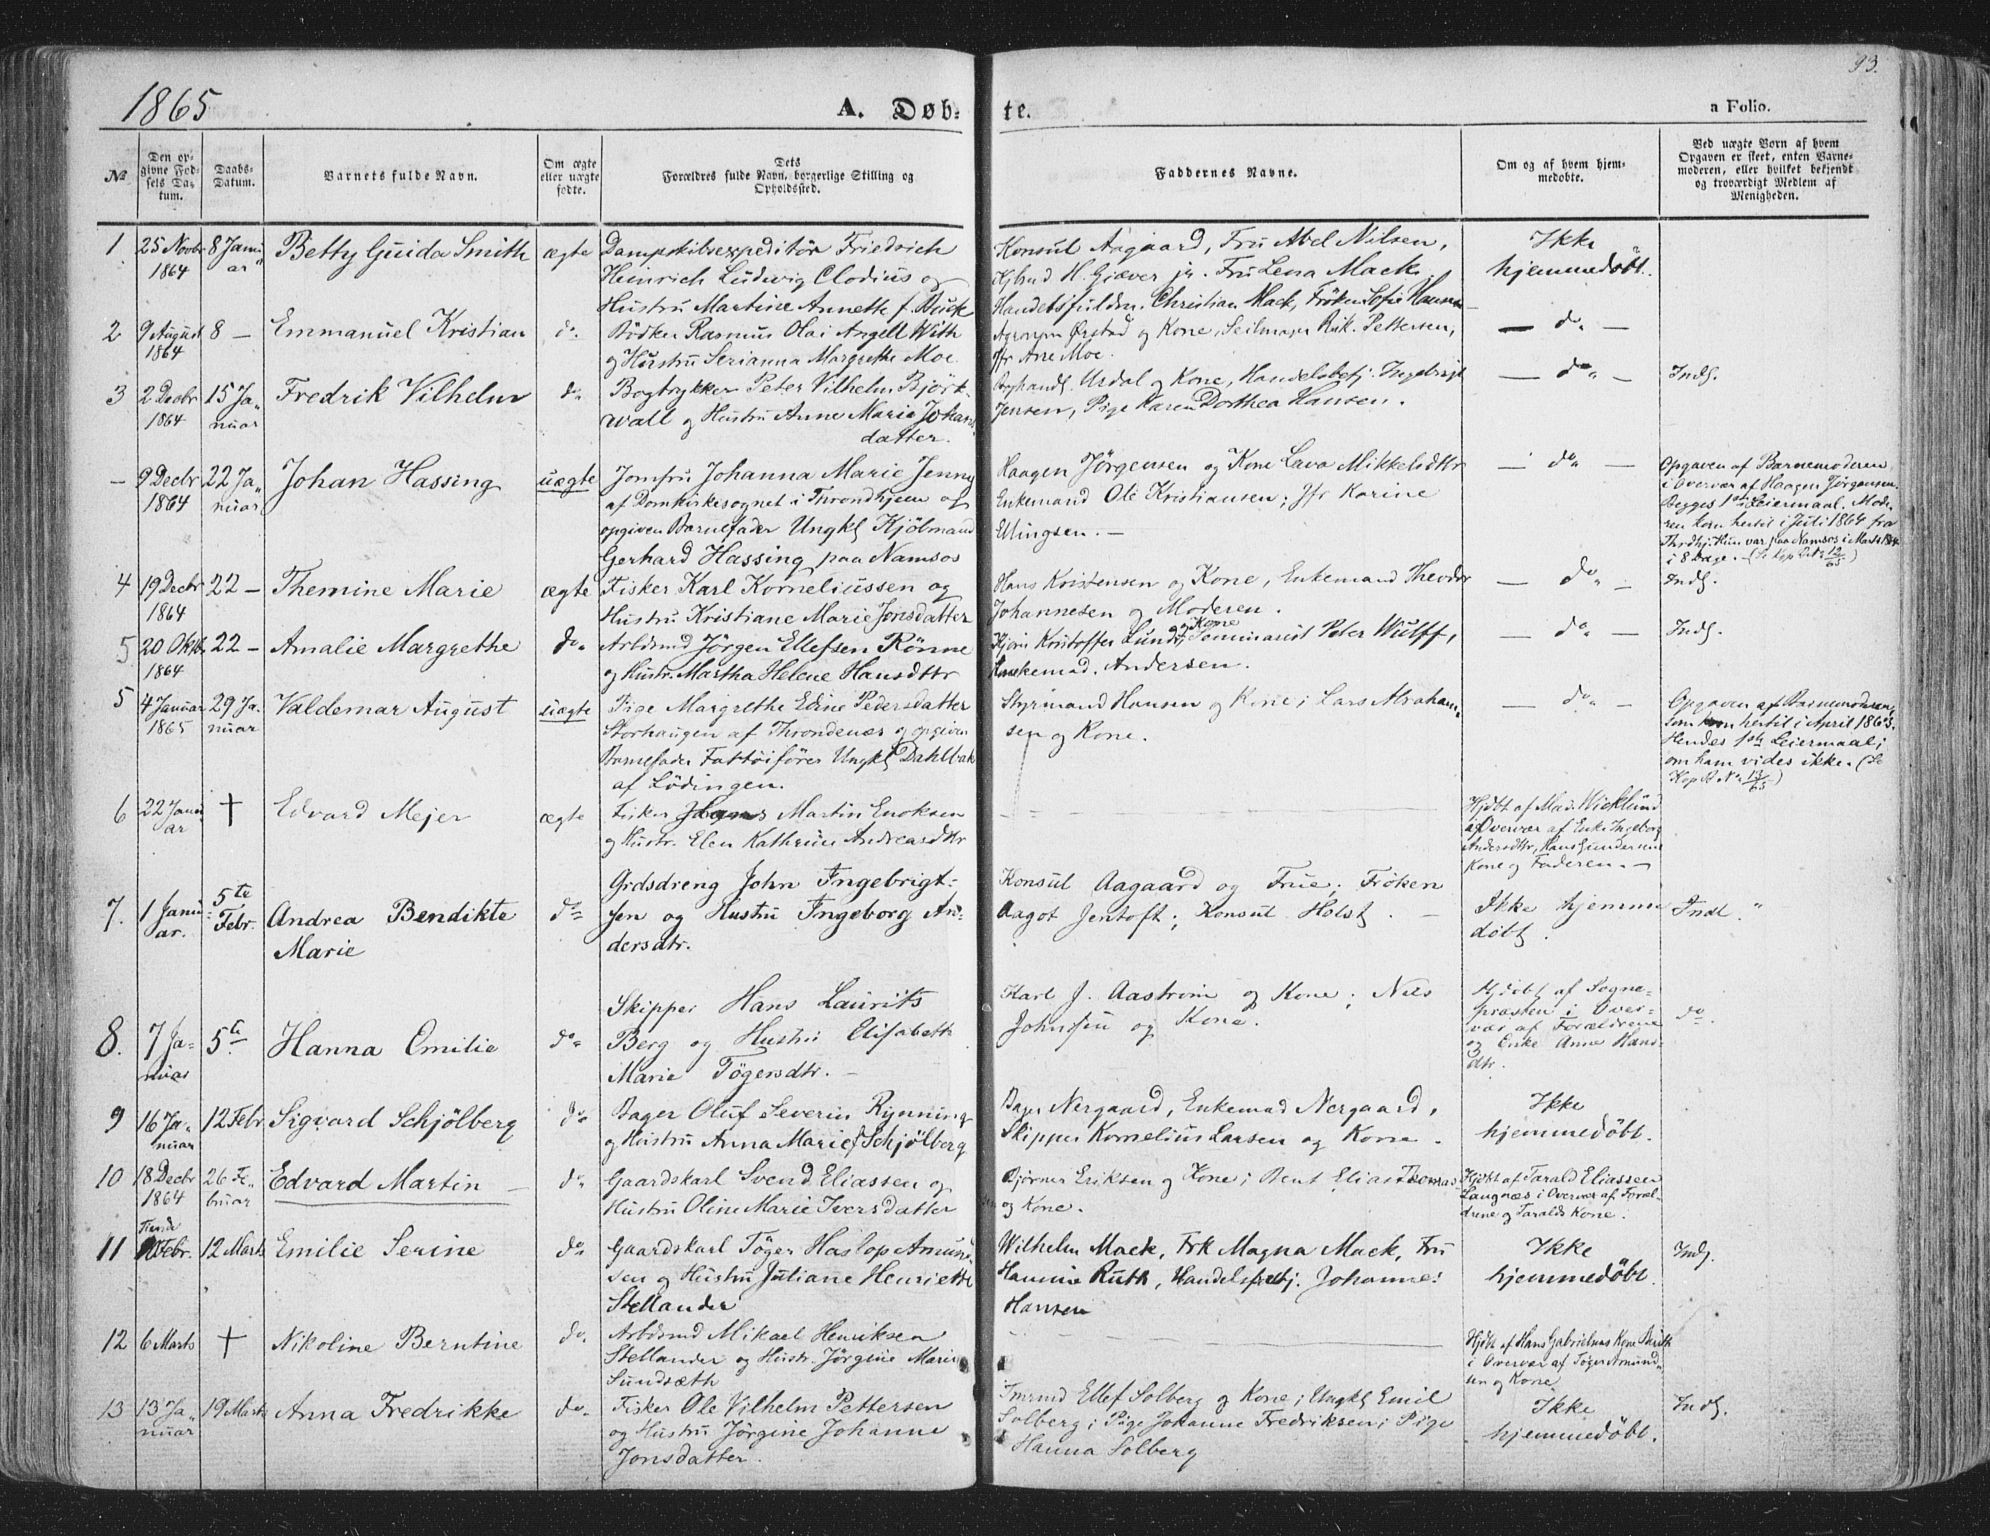 1865
A. Døb-
te.
a Folio.
93.
No
Den op-
givne Fød-
sels Da-
tum.
Daabs-
Datum.
Barnets fulde Navn.
Om ægte
eller uægte
fødte.
Dets
Forældres fulde Navn, borgerlige Stilling og
Opholdssted.
Faddernes Navne.
Om og af hvem hjem-
medøbte.
Ved uægte Børn af hvem
Opgaven er skeet, enten Barne-
moderen, eller hvilket bekjendt
og troværdigt Medlem af
Menigheden.
1. 25 Novbr 8 Janu- Betty Guida Smith ægte Dampskibsexpeditör Friedrich
1864 ar Heinrich Ludwig Clodius og
Hustru Martine Annette f.
Konsul Aagaard, Fru Abel Nilsen,
H. Giæver jr. Fru Lena Mack,
Handelsfuldm. Christian Mack, Fröken Sofie
Ikke
hjemmedöbt.
2 9 August 8 — Emmanuel Kristian do. Bödker Rasmus Olai Angell With
1864 og Hustru Serianna Margrethe Moe
Örstad og Kone, Seilmager Rik. Pettersen,
Jfr Ane Moe.
— do —
3 2 Decbr 15 Ja- Fredrik Vilhelm do Bogtrykker Peter Vilhelm Björk-
1864 nuar wall og Hustru Anne Marie Johans
datter.
Boghandl. Urdal og Kone, Handelsbetj. Ingebrigt
Jensen, Pige Karen Dorthea Hansen.
— do — Inds.
— 9 Decbr 22 Ja- Johan Hassing uægte Jomfru Johanna Marie Jenny
1864 nuar af Domkirkesognet i Throndhjem og
opgiven Barnefader Ungkl Kjöbmand
Gerhard Hassing paa Namsos
Haagen Jörgensen og Kone Lava Mikkelsdtr
Enkemand Ole Kristiansen; Jfr Karine
Ellingsen. —
— do —
Opgaven af Barnemoderen
i Overvær af Haagen Jörgensen.
Begges 1ste Leiermaal. Mode-
ren kom hertil i Juli 1864 fra
Thrdhj. Hun var paa Namsos i Marts 1864
i 8 Dage.
4 19 Decbr 22 — Themine Marie ægte Fisker Karl Korneliussen og
1864 Hustru Kristiane Marie Jonsdatter
Hans Kristensen og Kone, Enkemand Theodor
Johannesen og Moderen.
— do — Inds.
5 20 Oktb 22 — Amalie Margrethe do Arbdsmd Jörgen Ellefsen Rönne
1864 og Hustr. Martha Helene Hansdtr
Kristoffer Lund og Kone, Seminarist Peter Wulff,
Enkemad. Andersen.
— do — Inds.
5 4 Januar 29 Ja- Valdemar August uægte Pige Margrethe Edine Pedersdatter
1865 nuar Storhaugen af Throndenæs og opgiven
Barnefader Fattöiförer Ungkl Dahlbak
af Lödingen.
Styrmand Hansen og Kone; Lars Abraham-
sen og Kone.
— do —
Opgaven af Barnemoderen,
som kom hertil i April 1863.
Hendes 1ste Leiermaal;
om ham vides ikke.
6 22 Janu- † Edvard Mejer ægte Fisker Hans Martin Enoksen
ar og Hustr. Elen Kathrine Andreasdtr
Hjdbt af Mad. Wicklund
i Overvær af Enke Ingeborg
Andersdtr, Hans Gundersens
Kone og Faderen. —
7. 1 Janu- 5te Andrea Bendikte do Grdsdreng John Ingebrigt-
ar. Febr. Marie sen og Hustru Ingeborg An-
dersdtr.
Konsul Aagaard og Frue; Fröken
Aagot Jentoft; Konsul Holst. —
Ikke hjemme
döbt.
Inds.
8. 7 Ja- 5te Hanna Emilie do Skipper Hans Laurits
nuar Berg og Hustru Elisabeth
Marie Tögersdtr. —
Karl J. Aaström og Kone; Nils
Johnsen og Kone.
Hjdöbt af Sogne-
præsten i Over-
vær af Forældrene
og Enke Anne Hans-
dtr.
do.
9 16 Ja- 12 Febr. Sigvard Schjölberg do Bager Oluf Severin Rynning
nuar og Hustru Anna Marie f. Schjölberg
Bager Nergaard, Enkemad Nergaard,
Skipper Kornelius Larsen og Kone.
Ikke
hjemmedöbt.
10 18 Decbr 26 Fe- Edvard Martin do Gaardskarl Svend Eliassen og
1864 bruar Hustru Oline Marie Iversdatter
Björner Eriksen og Kone; Bent Elias Thomas-
sen og Kone.
Hjdbt af Tarald Eliassen
Langnæs i Overvær af Foræl-
drene og Taralds Kone.
11 Tiende Febr. 12 Marts Emilie Serine do Gaardskarl Töger Haslop Amund-
sen og Hustru Juliane Henriette
Stellander
Wilhelm Mack, Frk Magna Mack, Fru
Hannine Ruth, Handelsbetj. Johannes
Hansen
Ikke
hjemmedöbt.
Inds.
12 6 Marts † Nikoline Berntine do Arbdsmd Mikael Henriksen
Stellander og Hustr. Jörgine Marie
Sundsæth
Hjdbt af Hans Gabrielsens Kone Berith
i Overvær af Töger Amund-
sen og Kone
13 13 Ja- 19 Marts Anna Fredrikke do Fisker Ole Vilhelm Pettersen
nuar og Hustru Jörgine Johanne
Jonsdatter.
Ellef Solberg og Kone; Ungkl Emil
Solberg; Pige Johanne Fredriksen; Pige
Hanna Solberg
Ikke
hjemmedöbt.
Inds.